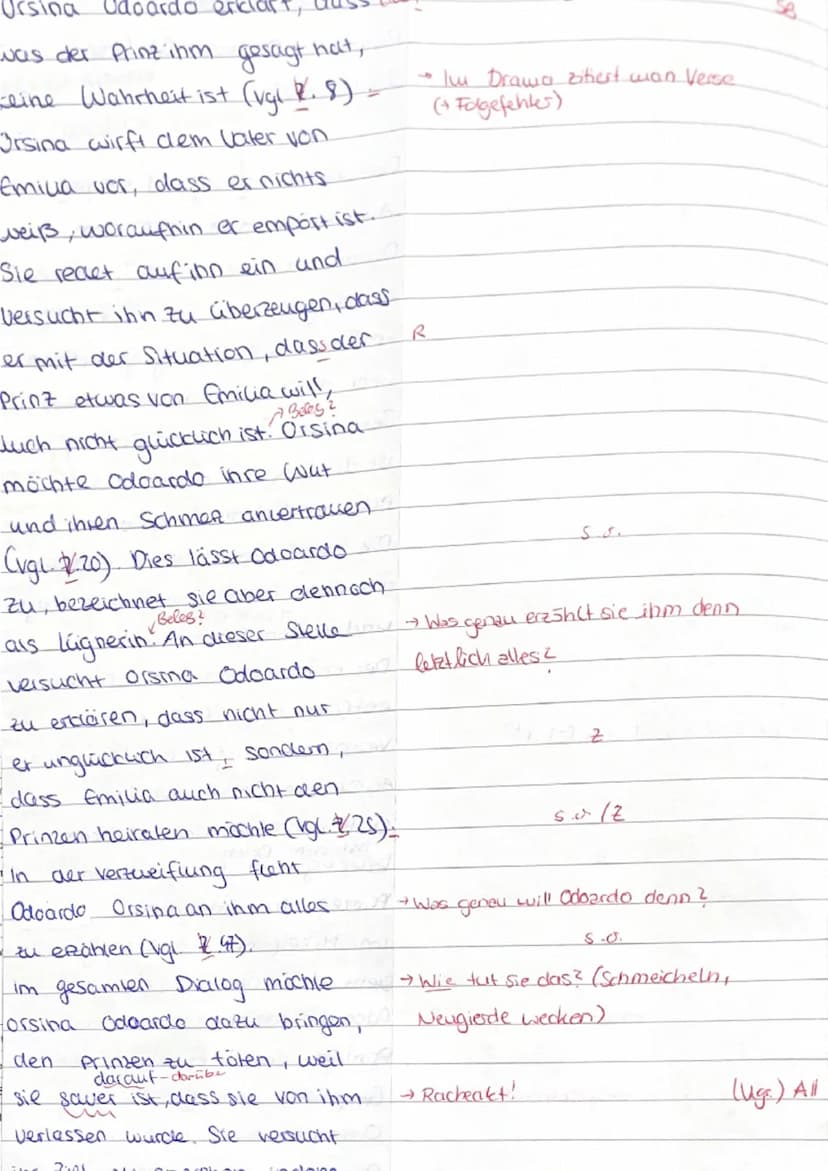 Orsina Odoardo erklärt, dass
58
was der Prinz ihm gesagt hat,
keine Wahrheit ist (vgl. Z. 8)
→ Im Drama zitiert man Verse
(+ Folgefehler)
Orsina wirft dem Vater von
Emilia vor, dass er nichts
weiß, woraufhin er empört ist.
Sie redet auf ihn ein und
versucht ihn zu überzeugen, dass
er mit der Situation, dass der R
Prinz etwas von Emilia will,
→ Beleg?
auch nicht glücklich ist. Orsina
möchte Odoardo ihre Wut
und ihren Schmerz anvertrauen
s. o.
(vgl. Z. 20). Dies lässt Odoardo
zu, bezeichnet sie aber dennoch
Beleg?
als Lügnerin. An dieser Stelle
→ Was genau erzählt sie ihm denn
letztlich alles?
versucht Orsina Odoardo
zu erklären, dass nicht nur
er unglücklich ist, sondern, Z
dass Emilia auch nicht den
Prinzen heiraten möchte (vgl. Z. 25). s. o. / Z
In der Verzweiflung fleht
Odoardo Orsina an ihm alles → Was genau will Odoardo denn?
zu erzählen (vgl. Z. 47). s. o.
Im gesamten Dialog möchte → Wie tut sie das? (Schmeicheln,
Orsina Odoardo dazu bringen, Neugierde wecken)
den Prinzen zu töten, weil
darauf - darüber
sie sauer ist, dass sie von ihm → Racheakt! (Ugs.) A
verlassen wurde. Sie versucht